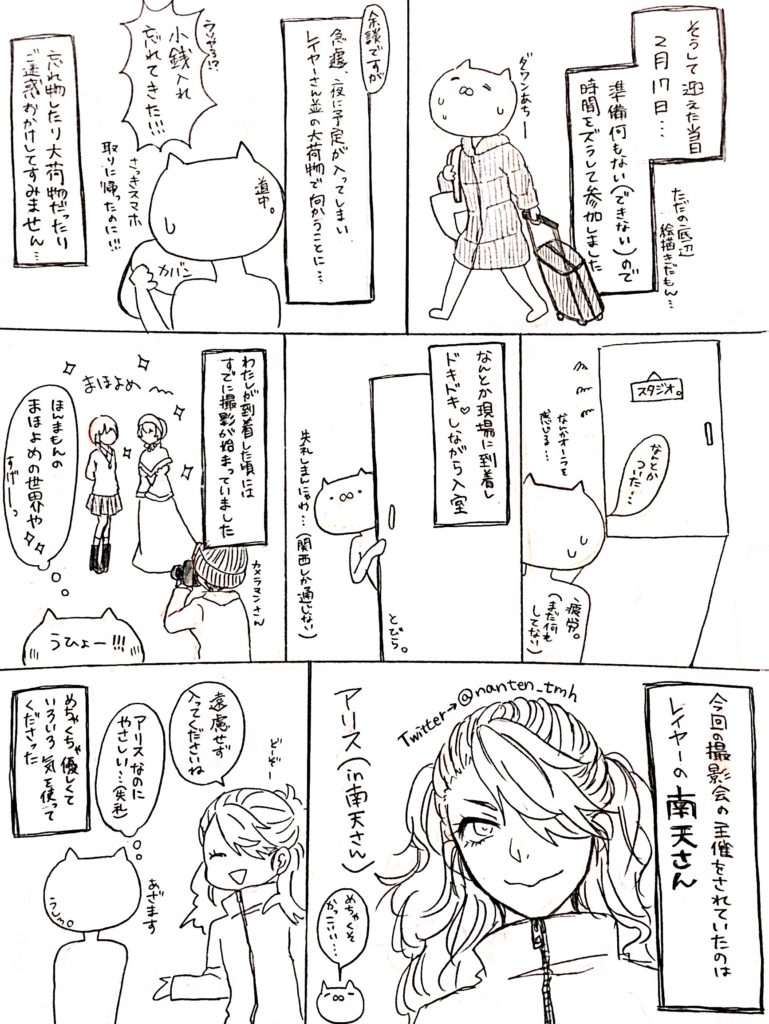 そうして迎えた当日
2月17日…
準備何もない(できない)ので
時間をズラして参加しました
ただの底辺
絵描きだもん…
ダワンあちー
余談ですが
急遽、夜に予定が入ってしまい
レイヤーさん並の大荷物で向かうことに…
ウソやろ!?
小銭入れ
忘れてきた!!!
道中。
さっきスマホ
取りに帰ったのに!!!
カバン
忘れ物したり大荷物だったり
ご迷惑おかけしてすみません…
スタジオ。
なんとか
ついた…
なんかオーラを
感じる…
疲労。
(まだ何も
してない)
なんとか現場に到着し
ドキドキ♥しながら入室
とびら。
失礼しまんにゃわ…(関西しか通じない)
わたしが到着した頃には
すでに撮影が始まっていました
カメラマンさん
まほよめ〜
ほんまもんの
まほよめの世界や
すげーーっ
うひょー!!!
今回の撮影会の主催をされていたのは
レイヤーの南天さん
Twitter→@nanten_tmh
アリス(in南天さん)
めちゃくそ
かっこいい…
どーぞー
遠慮せず
入ってくださいね
アリスなのに
やさしい…(失礼)
あざます
めちゃくちゃ優しくて
いろいろ気を使って
くださった